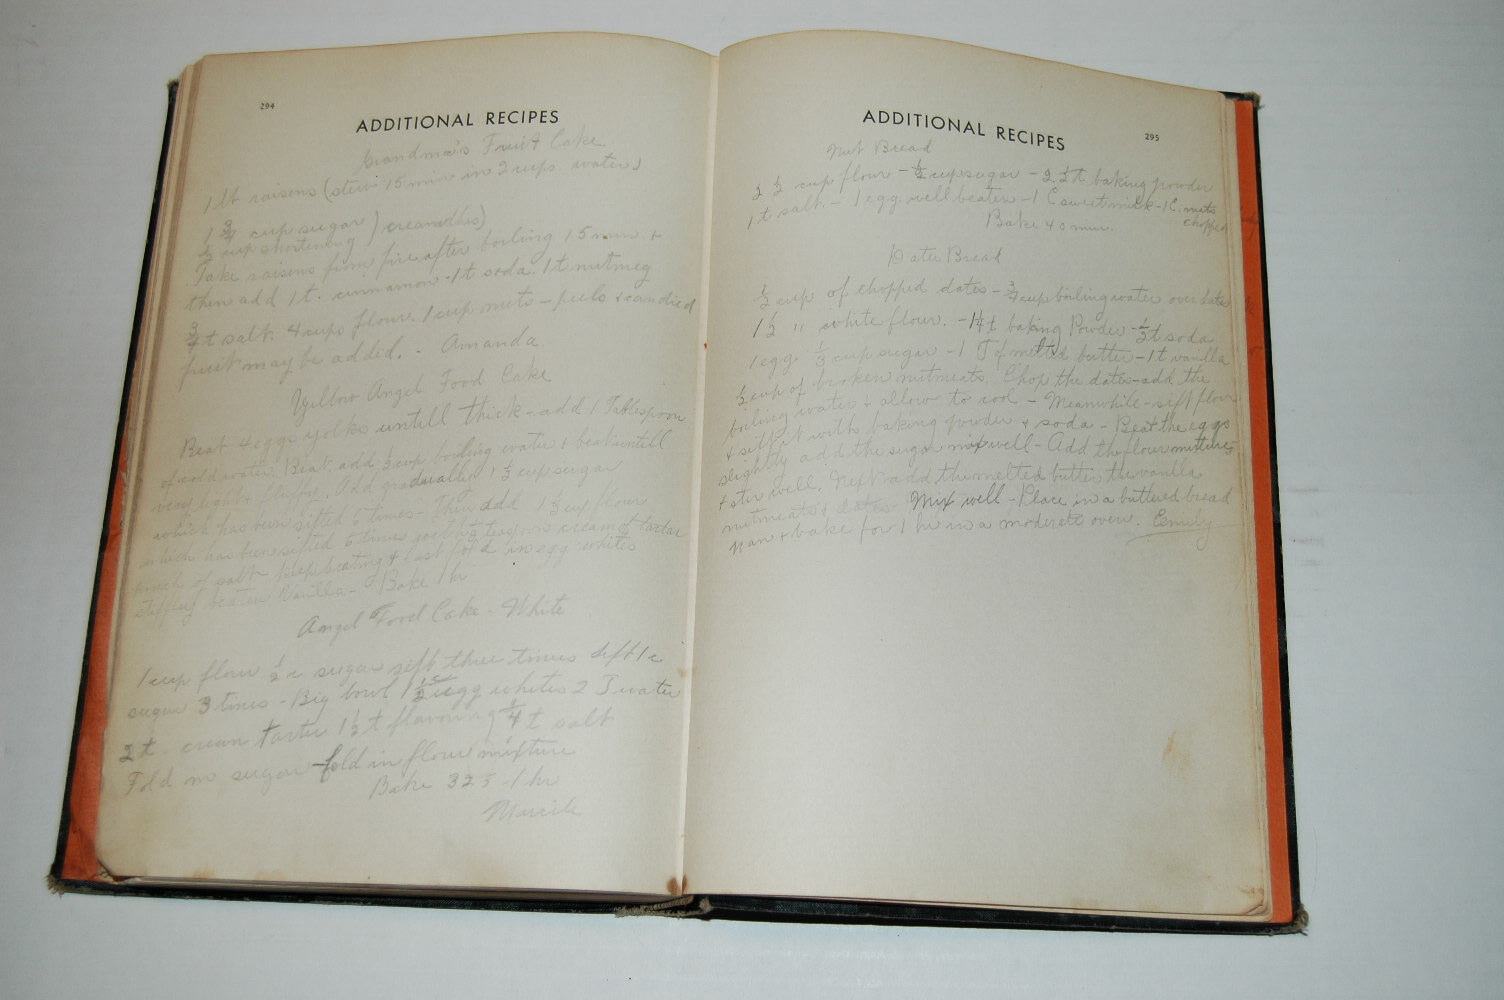 294
ADDITIONAL RECIPES
Grandma's Fruit Cake
1 lb raisins (stew 15 min in 2 cups water)
1 3/4 cup sugar ) creamed
1/2 cup shortening )
Take raisins from fire after boiling 15 min. +
then add 1 t. cinnamon - 1 t soda 1 t nutmeg
3/4 t salt. 4 cups flour. 1 cup nuts - peels + candied
fruit may be added. - Amanda
Yellow Angel Food Cake
Beat 4 eggs yolks untill thick - add 1 Tablespoon
of cold water. Beat. add 1/2 cup boiling water + beat untill
very light + fluffy. Add gradually 1 1/2 cup sugar
which has been sifted 6 times - Then add 1 1/2 cup flour
which has been sifted 6 times with 1/2 teaspoon cream of tartar
pinch of salt keep beating + last fold in egg whites
stiffly beaten Vanilla - Bake 1 hr
Angel Food Cake - White
1 cup flour 1/2 c sugar sift three times Sift 1 c
sugar 3 times - Big bowl 1 1/2 c egg whites 2 T water
2 t cream tarter 1 1/2 t flavoring 1/4 t salt
Fold in sugar - fold in flour mixture
Bake 325 - 1 hr
295
ADDITIONAL RECIPES
Nut Bread
2 1/2 cup flour - 1/2 cup sugar - 2 1/2 t. baking powder
1 t salt - 1 egg well beaten - 1 C sweet milk - 1 C. nuts
chopped
Bake 40 min.
Date Bread
1/2 cup of chopped dates - 3/4 cup boiling water over date
1 1/2 " white flour. - 1 1/4 t baking Powder - 1/2 t soda
1 egg 1/3 cup sugar - 1 T of melted butter - 1 t vanilla
1/2 cup of broken nutmeats. Chop the dates - add the
boiling water + allow to cool - Meanwhile - sift flour
+ sift it with baking powder + soda - Beat the eggs
slightly add the sugar mix well - Add the flour mixture
+ stir well. Next add the melted butter the vanilla
nutmeats + dates Mix well - Place in a buttered bread
pan + bake for 1 hr in a moderate oven. Emily